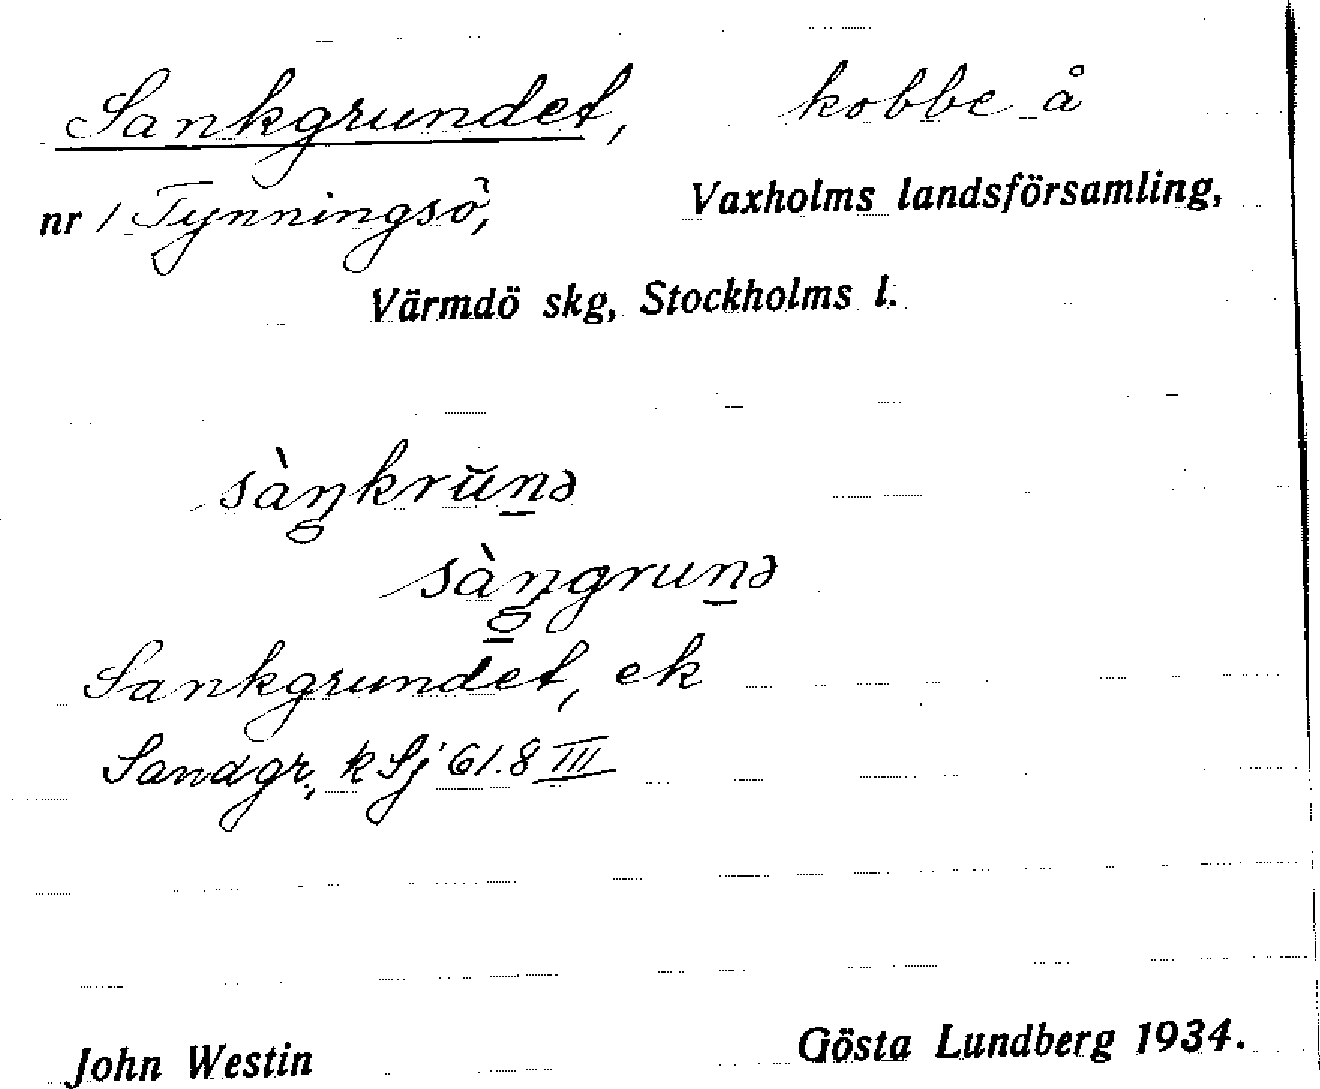 Sankgrundet, kobbe å
nr 1 Tynningsö, Vaxholms landsförsamling,
Värmdö skg, Stockholms l.
sàŋkrŭnə
sàŋgrunə
Sankgrundet, ek
Sandgr., k Sj 61.8 III
John Westin Gösta Lundberg 1934.